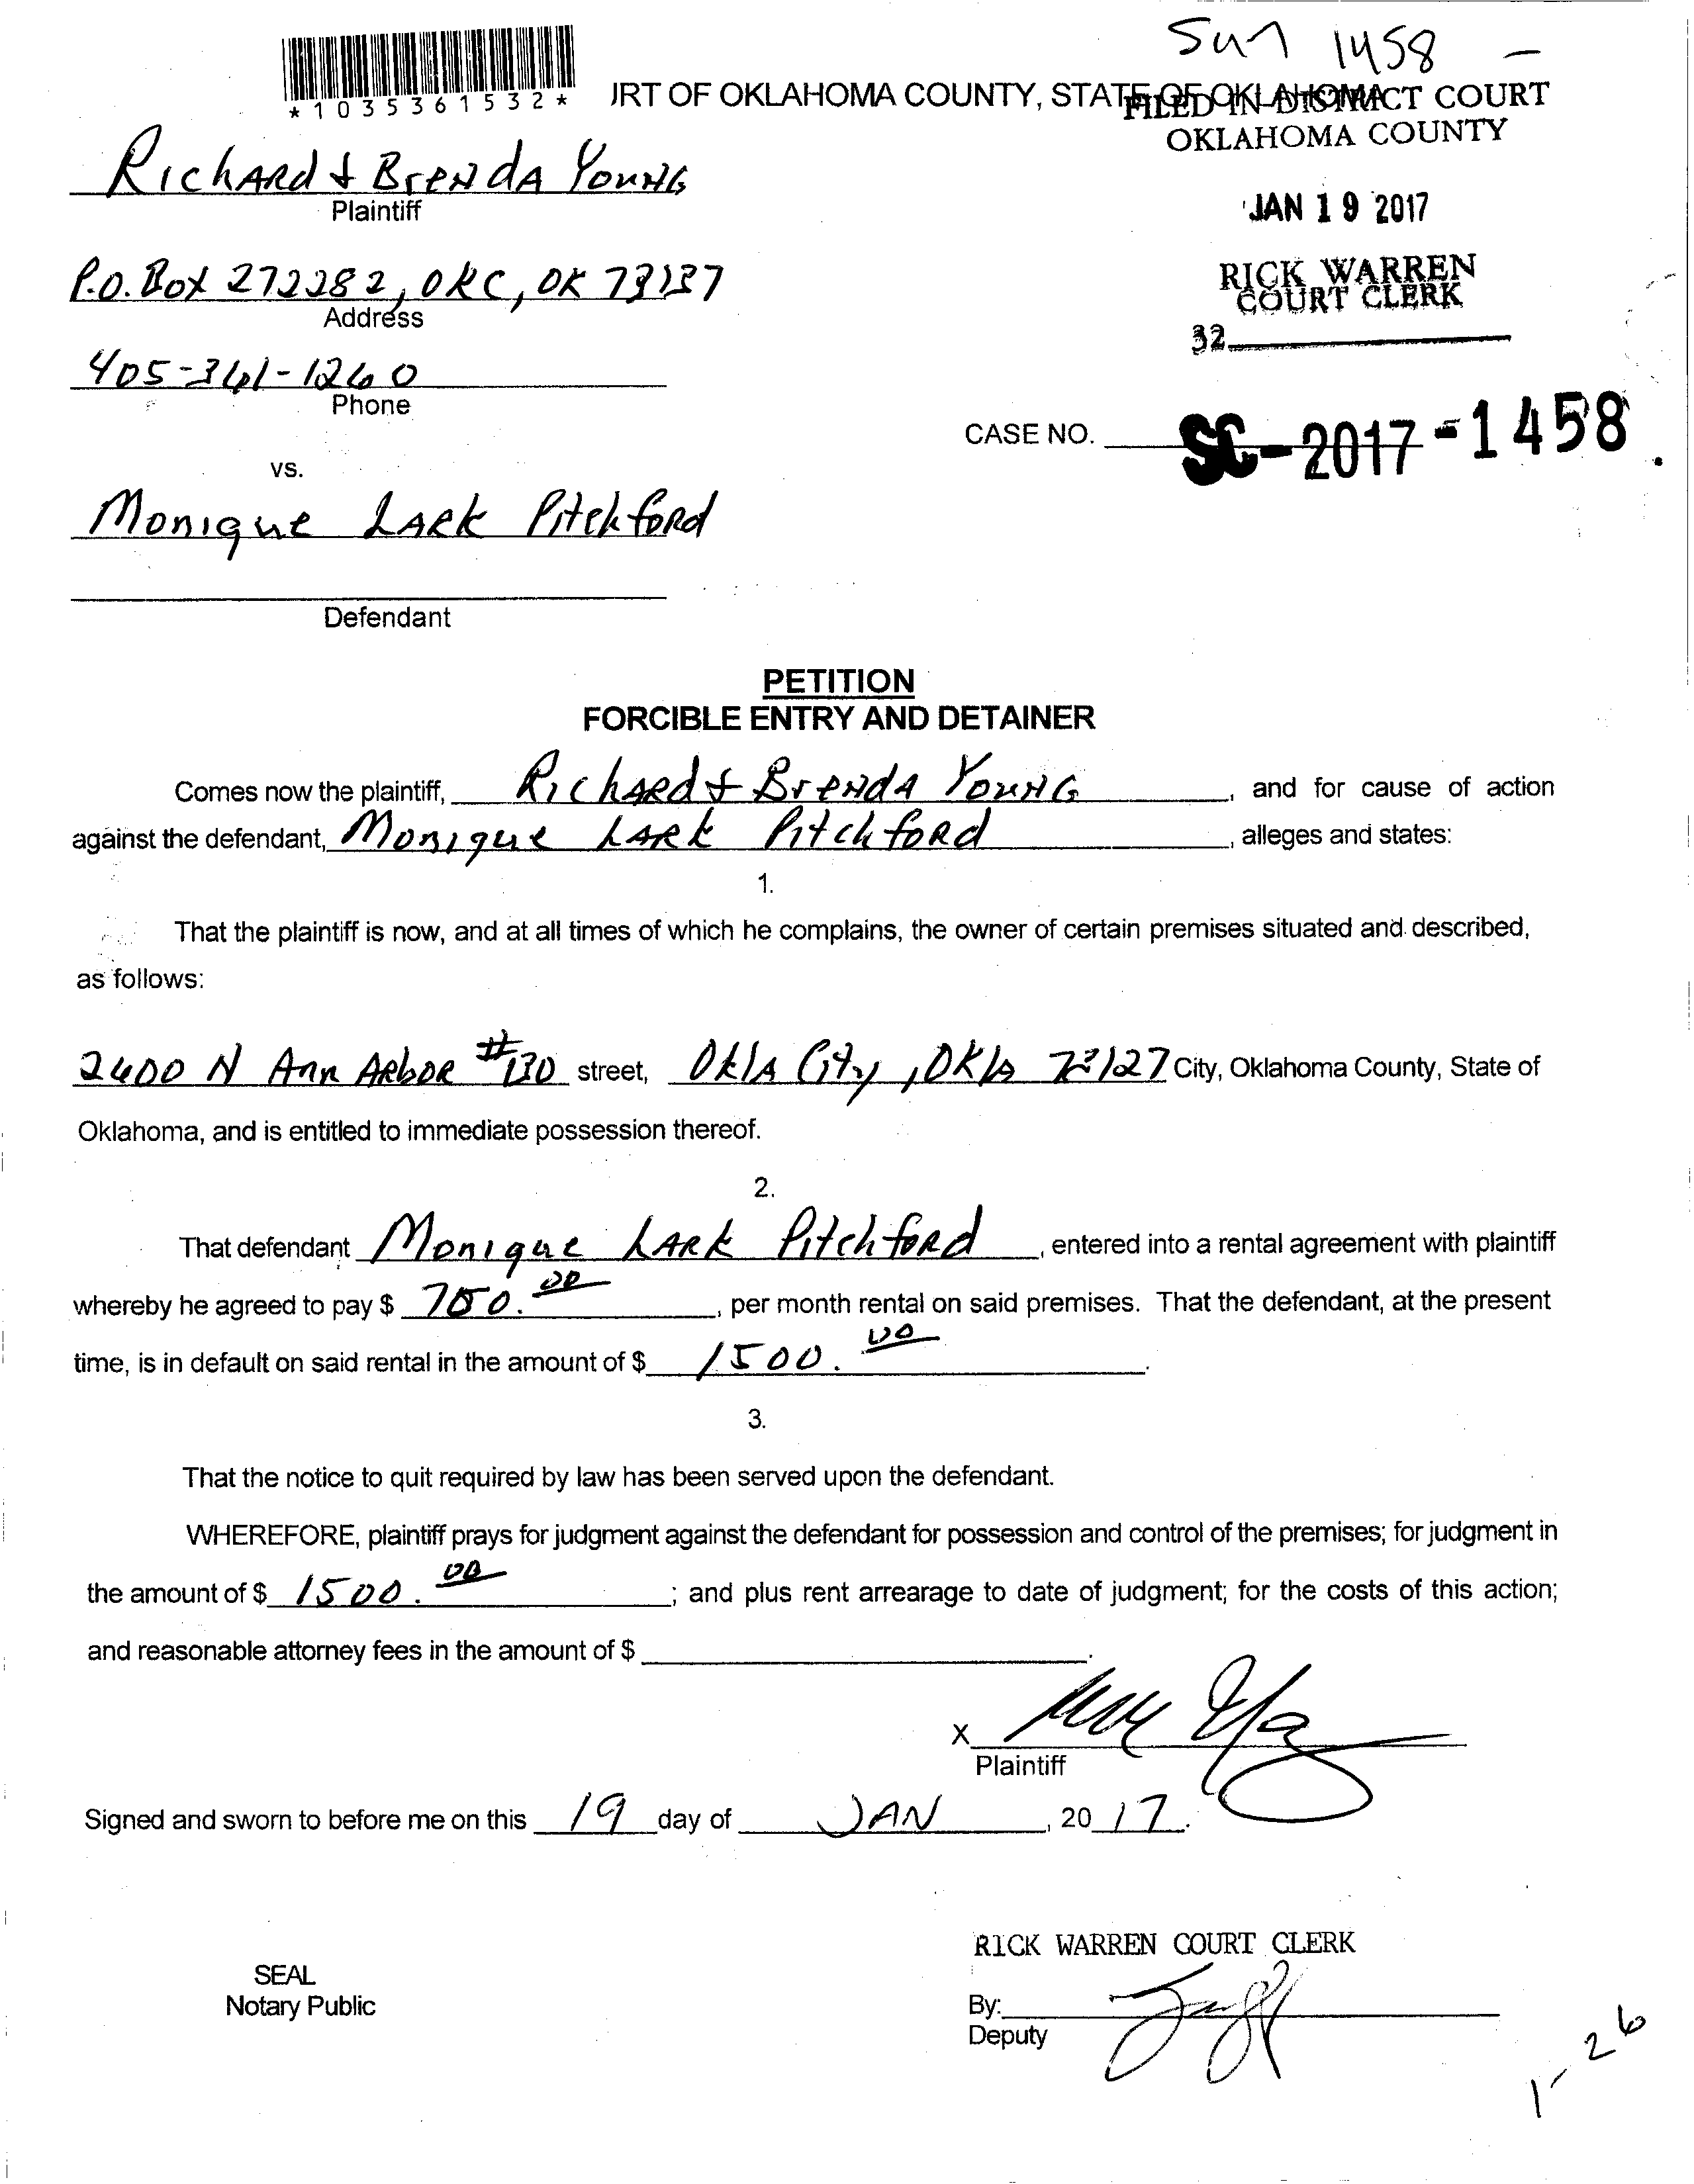 Sm 1458 -
*1035361532*
JRT OF OKLAHOMA COUNTY, STATE OF OKLAHOMA
FILED IN DISTRICT COURT
OKLAHOMA COUNTY
Richard & Brenda Young
Plaintiff
JAN 19 2017
P.O. Box 272282, OKC, OK 73137
Address
RICK WARREN
COURT CLERK
32
405-361-1260
Phone
CASE NO. SC-2017-1458
vs.
Monique Lark Pitchford
Defendant
PETITION
FORCIBLE ENTRY AND DETAINER
Comes now the plaintiff, Richard & Brenda Young, and for cause of action
against the defendant, Monique Lark Pitchford, alleges and states:
1.
That the plaintiff is now, and at all times of which he complains, the owner of certain premises situated and described,
as follows:
2400 N Ann Arbor #130 street, Okla City, Okla 73127 City, Oklahoma County, State of
Oklahoma, and is entitled to immediate possession thereof.
2.
That defendant Monique Lark Pitchford, entered into a rental agreement with plaintiff
whereby he agreed to pay $ 750.00, per month rental on said premises. That the defendant, at the present
time, is in default on said rental in the amount of $ 1500.00.
3.
That the notice to quit required by law has been served upon the defendant.
WHEREFORE, plaintiff prays for judgment against the defendant for possession and control of the premises; for judgment in
the amount of $ 1500.00; and plus rent arrearage to date of judgment; for the costs of this action;
and reasonable attorney fees in the amount of $ .
X
Plaintiff
Signed and sworn to before me on this 19 day of JAN, 2017.
RICK WARREN COURT CLERK
SEAL
Notary Public
By:
Deputy
1-26